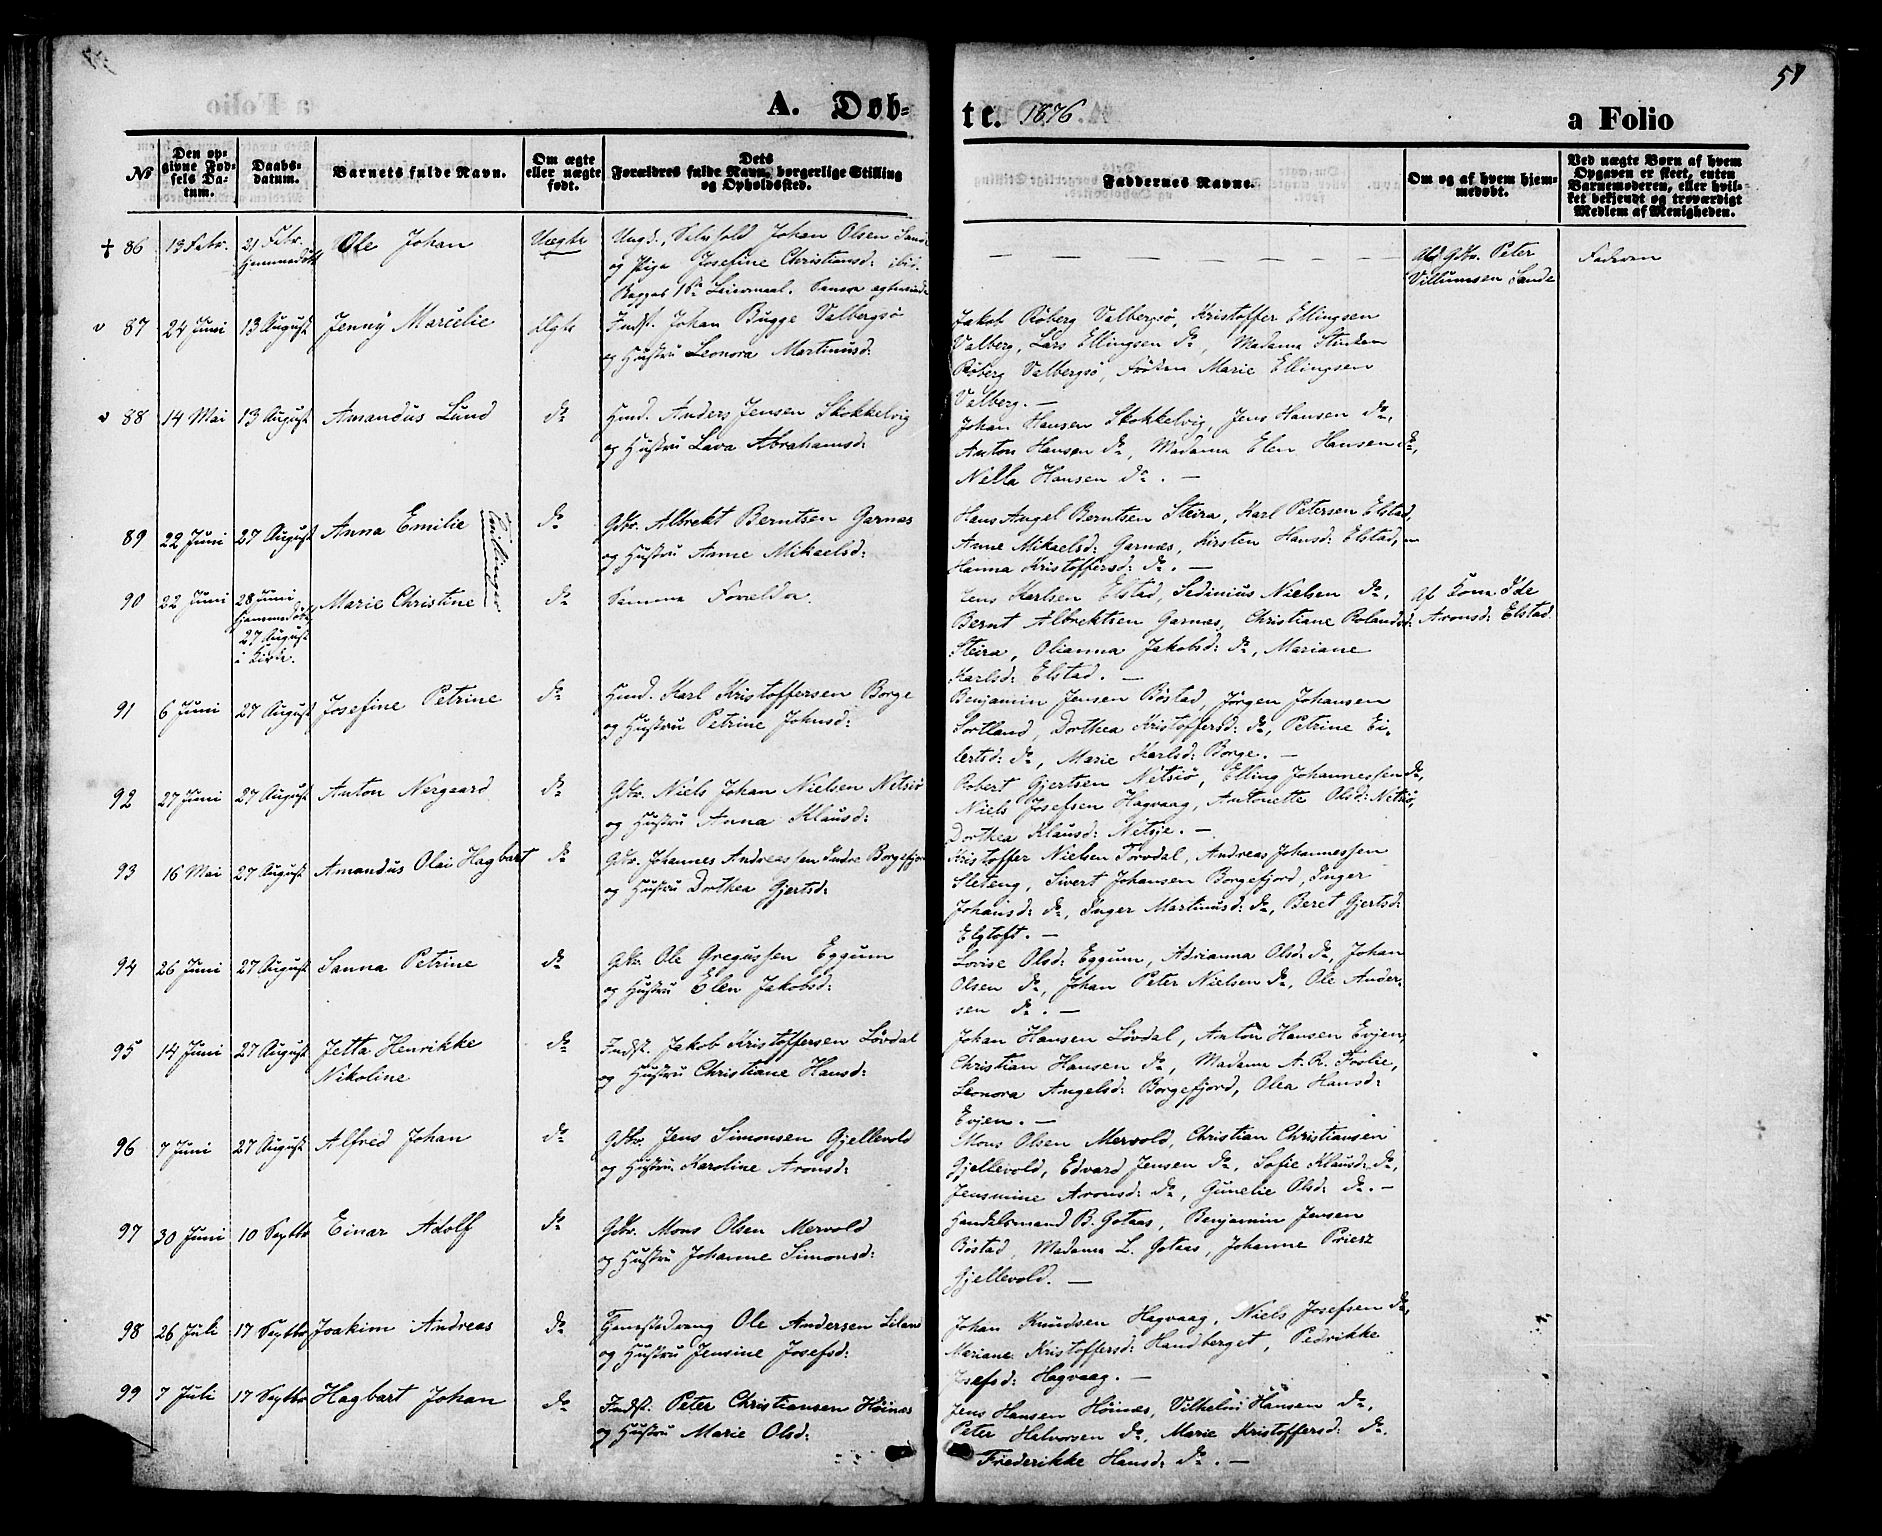 57
A. Døb-
te. 1876
a Folio
No
Den op-
givne Fød-
sels Da-
tum.
Daabs-
datum.
Barnets fulde Navn.
Om ægte
eller uægte
født.
Dets
Forældres fulde Navn, borgerlige Stilling
og Opholdssted.
Faddernes Navne.
Om og af hvem hjem-
medøbt.
Ved uægte Børn af hvem
Opgaven er skeet, enten
Barnemoderen, eller hvil-
ket bekjendt og troværdigt
Medlem af Menigheden.
+ 86
13 Febr.
21 Febr.
Hjemmedøbt
Ole Johan
Uægte
Ungd., Selvfold Johan Olsen Sande
og Pige Josefine Christiansd: ibid.
Begges 1ste Leiermaal.
Af Gbr. Peter
Villumsen Sande
Faderen
v 87
24 Juni
13 August
Jenny Marcelie
Ægte
Indst. Johan Bugge Valbergsø
og Hustru Leonora Martinusd:
Jakob Røberg Valbergsø, Kristoffer Ellingsen
Valberg, Lars Ellingsen do, Madama
Røberg Valbergsø, Frøken Marie Ellingsen
Valberg. —
v 88
14 Mai
13 August
Amandus Lund
do
Hmd. Anders Jensen Stokkelvig
og Hustru Lava Abrahamsd:
Johan Hansen Stokkelvig, Jens Hansen do,
Anton Hansen do, Madama Elen Hansen do,
Nella Hansen do. —
89
22 Juni
27 August
Anna Emilie
Tvillinger
do
Gbr. Albrekt Berntsen Garnæs
og Hustru Anne Mikaelsd:
Hans Angel Berntsen Steira, Karl Petersen Elstad,
Anne Mikaelsd: Garnæs, Kirsten Hansd: Elstad,
Hanna Kristoffersd: do. —
90
22 Juni
28 Juni
Hjemmedøbt
27 August
i Kirke.
Marie Christine
do
Samme Forældre.
Jens Karlsen Elstad, Sedinius Nielsen do,
Bernt Albrektsen Garnæs, Christiane Rolandsd:
Steira, Olianna Jakobsd: do, Mariane
Karlsd: Elstad. —
Af Kone Ide
Aronsd: Elstad.
91
6 Juni
27 August
Josefine Petrine
do
Hmd. Karl Kristoffersen Borge
og Hustru Petrine Johnsd:
Benjamin Jensen Bøstad, Jørgen Johansen
Sortland, Dorthea Kristoffersd: do, Petrine Ei-
lertsd: do, Marie Karlsd: Borge. —
92
27 Juni
27 August
Anton Nergaard
do
Gbr. Niels Johan Nielsen Nétsiø
og Hustru Anna Klausd:
Robert Gjertsen Nétsiø, Elling Johannessen do,
Niels Josefsen Hagvaag, Antonette Olsd: Nétsiø,
Dorthea Klausd: Nétsje. —
93
16 Mai
27 August
Amandus Olai Hagbart
do
Gbr. Johannes Andreassen Indre Borgefjor
og Hustru Dorthea Gjertsd:
Kristoffer Nielsen Torvdal, Andreas Johannessen
Sleteng, Sivert Johansen Borgefjord, Inger
Johansd: do, Inger Martinusd: do, Beret Gjertsd:
Elgtoft. —
94
26 Juni
27 August
Sanna Petrine
do
Gbr. Ole Gregussen Eggum
og Hustru Elen Jakobsd:
Lovise Olsd: Eggum, Adrianna Olsd: do, Johan
Olsen do, Johan Peter Nielsen do, Ole Ander-
sen do. —
95
14 Juni
27 August
Jetta Henrikke
Nikoline
do
Indst. Jakob Kristoffersen Løvdal
og Hustru Christiane Hansd:
Johan Hansen Løvdal, Anton Hansen Evjen,
Christian Hansen do, Madama A. R. Foslie,
Leonora Angelsd: Borgefjord, Olea Hansd:
Evjen. —
96
7 Juni
27 August
Alfred Johan
do
Gbr. Jens Simonsen Gjellevold
og Hustru Karoline Aronsd:
Mons Olsen Mervold, Christian Christiansen
Gjellevold, Edvard Jensen do, Sofie Klausd: do,
Jensmine Aronsd: do, Gunelie Olsd: do. —
97
30 Juni
10 Septbr
Einar Adolf
do
Gbr. Mons Olsen Mervold
og Hustru Johanne Simonsd:
Handelsmand B. Gotaas, Benjamin Jensen
Bøstad, Madama L. Gotaas, Johanne Priesz
Gjellevold. —
98
26 Juli
17 Septbr
Joakim Andreas
do
Ole Andersen
og Hustru Jensine Josefsd:
Johan Knudsen Hagvaag, Niels Josefsen do,
Mariane Kristoffersd: Handberget, Pedrikke
Josefsd: Hagvaag. —
99
7 Juli
17 Septbr
Hagbart Johan
do
Indst. Peter Christiansen Høinæs
og Hustru Marie Olsd:
Jens Hansen Høinæs, Vilhelm Hansen do,
Peter Halvorsen do, Marie Kristoffersd: do.
Frederikke Hansd: do. —